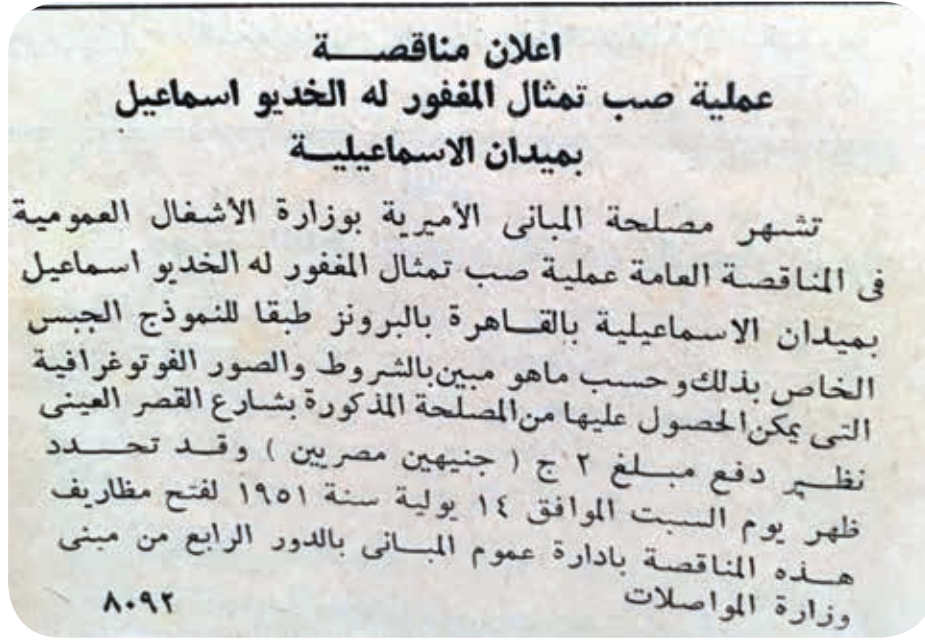 اعلان مناقصـــة
عملية صب تمثال المغفور له الخديو اسماعيل
بميدان الاسماعيليـة
تشهر مصلحة المبانى الأميرية بوزارة الأشغال العمومية
فى المناقصة العامة عملية صب تمثال المغفور له الخديو اسماعيل
بميدان الاسماعيلية بالقـاهرة بالبرونز طبقا للنموذج الجبس
الخاص بذلك وحسب ماهو مبين بالشروط والصور الفوتوغرافية
التى يمكن الحصول عليها من المصلحة المذكورة بشارع القصر العينى
نظـير دفع مبـلغ ٢ ج ( جنيهين مصريين ) وقـد تحـدد
ظهر يوم السبت الموافق ١٤ يولية سنة ١٩٥١ لفتح مظاريف
هـذه المناقصة بادارة عموم المبـانى بالدور الرابع من مبنى
وزارة المواصلات
٨٠٩٢